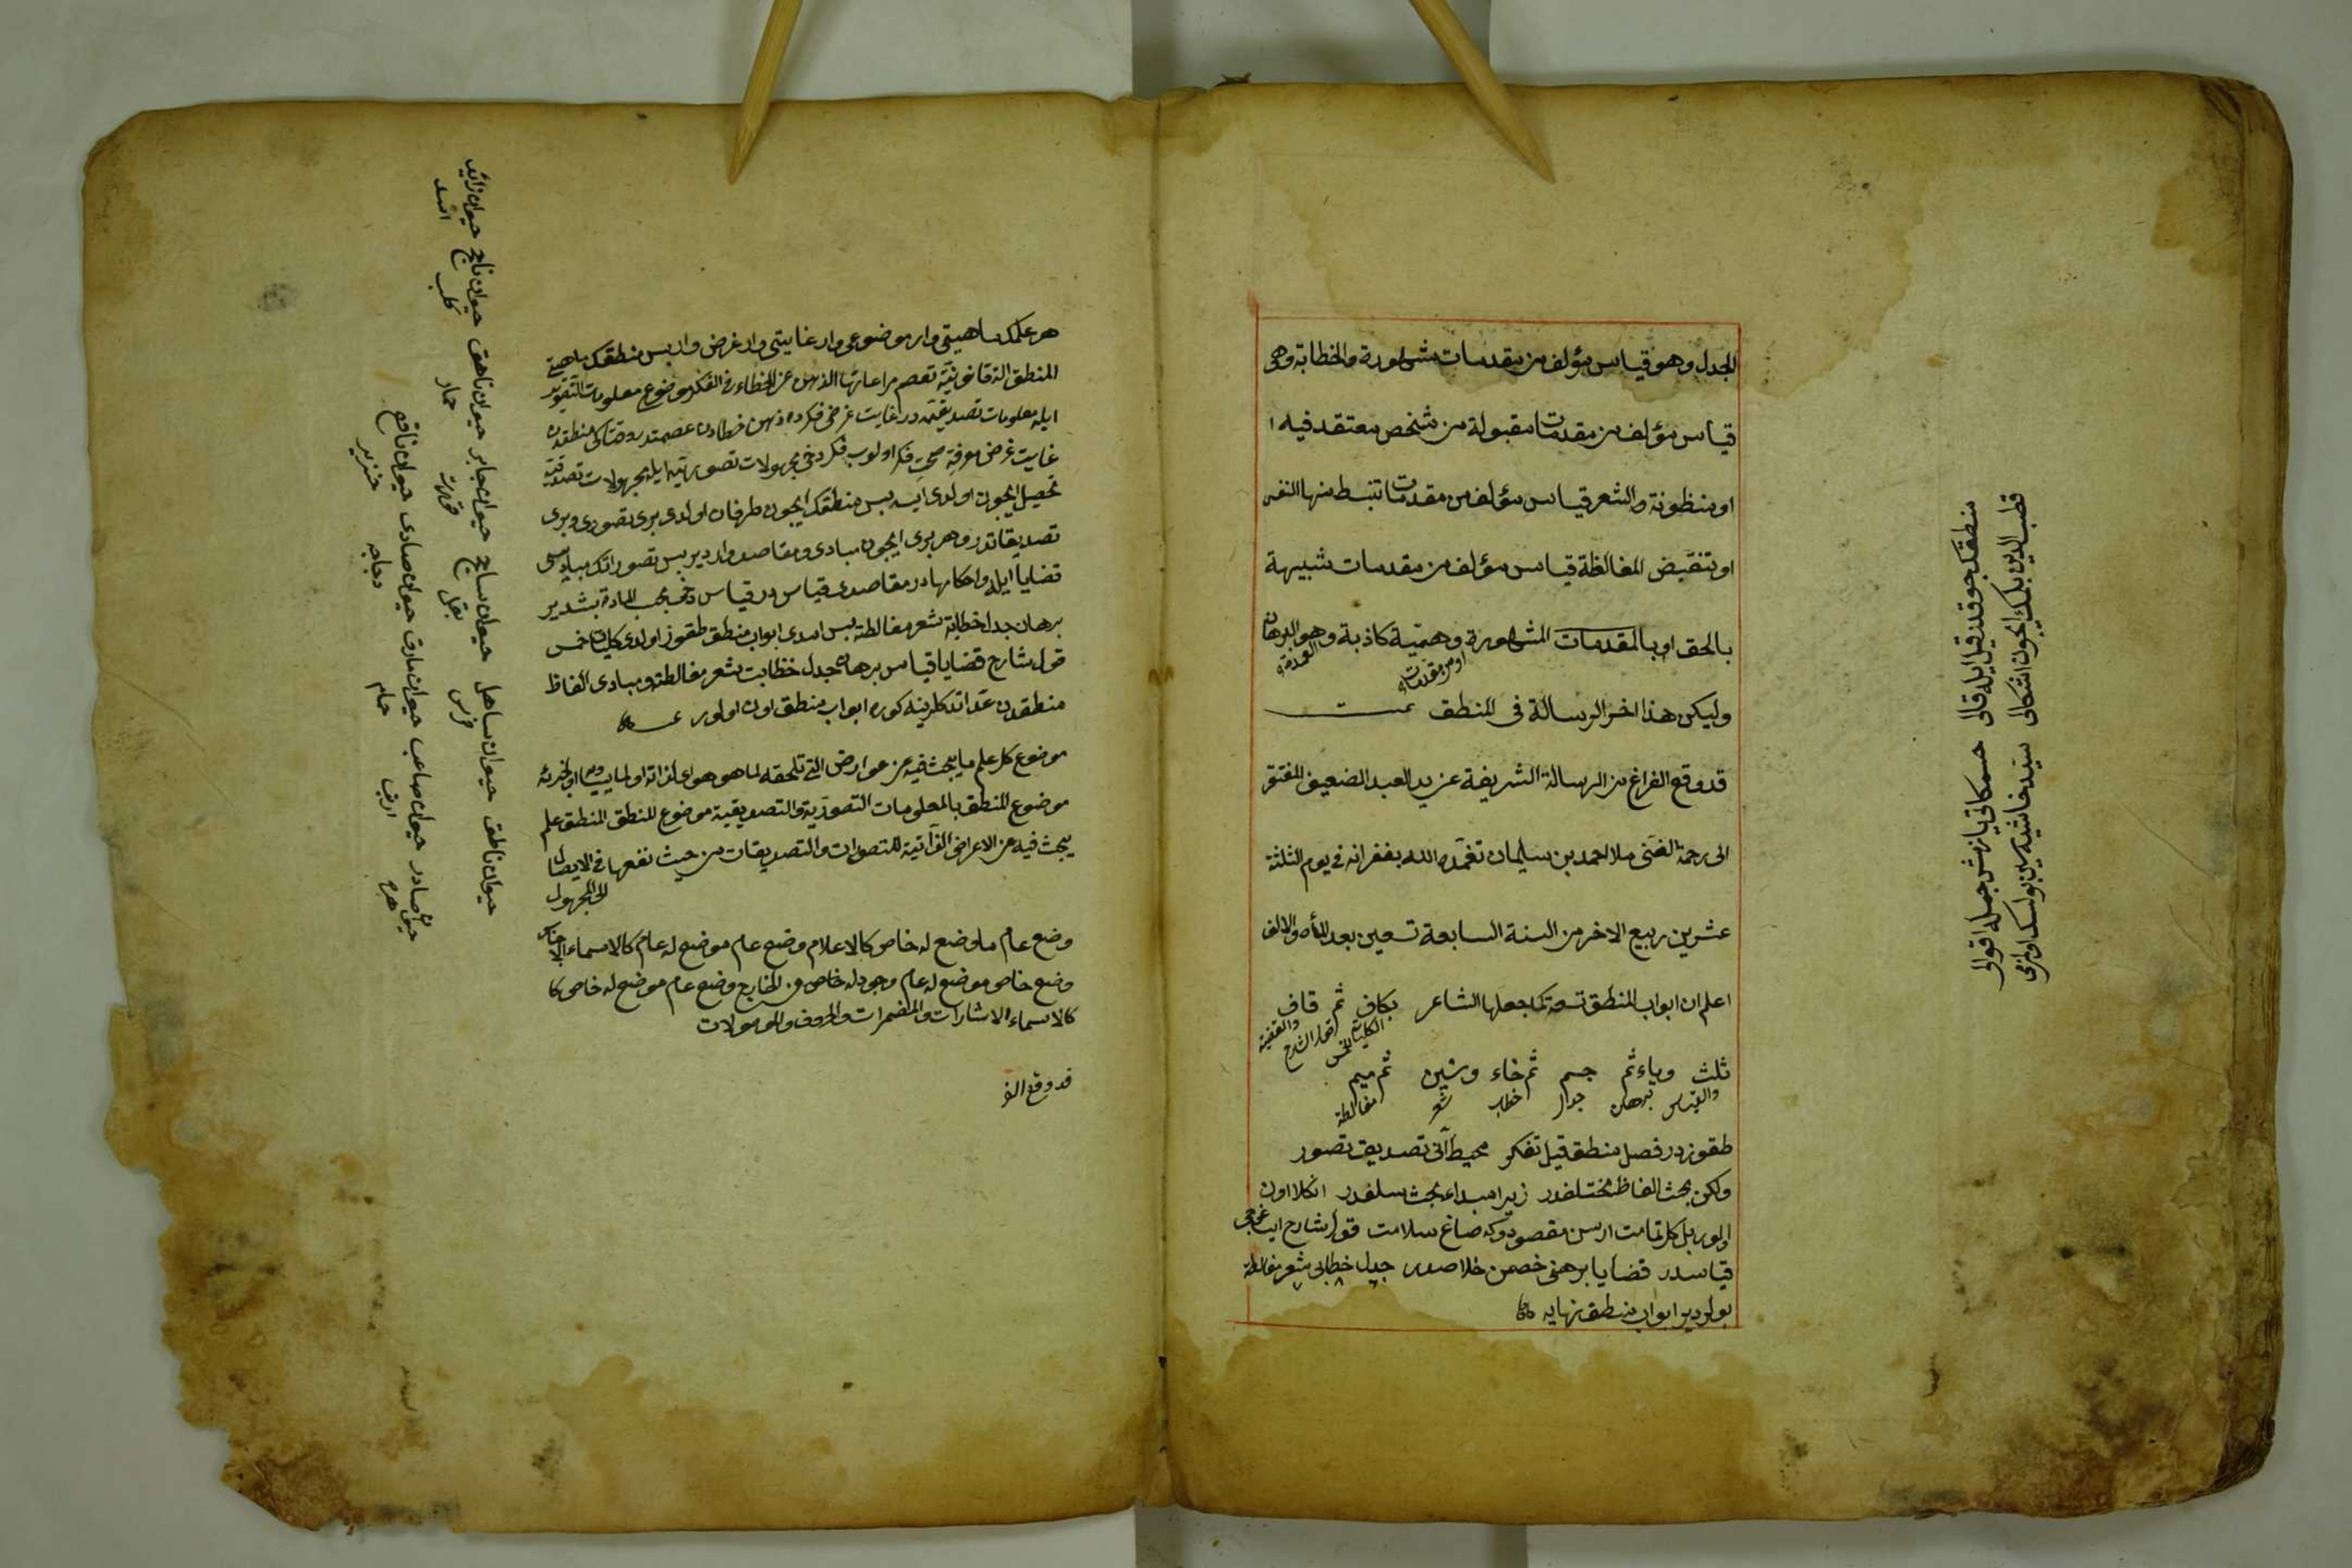 الجدل وهو قياس مؤلف من مقدمات مشهورة والخطابة وهى
قياس مؤلف من مقدمات مقبولة من شخص معتقد فيه ا
او منظونة والشعر قياس مؤلف من مقدمات تنبسط منها النفس
او تنقبض المغالطة قياس مؤلف من مقدمات شبيهة
بالحق او بالمقدمات المشهورة وهمية كاذبة وهو البرهان
او من مقدمات العمدة
وليكن هذا اخر الرسالة فى المنطق تمت
قد وقع الفراغ من الرسالة الشريفة عن يد العبد الضعيف المفتقر
الى رحمة الغنى ملا احمد بن سليمان تغمده الله بغفرانه فى يوم الثلثة
عشرين ربيع الاخر من السنة السابعة تسعين بعد المأة والالف
اعلم ان ابواب المنطق تسعة كما جعلها الشاعر بكاف ثم قاف
الكليات الخمس قول الشارح والقضية
ثلث وباء ثم جسم ثم خاء وشين ثم ميم
والقياس برهان جدل خطاب شعر مغالطة
طقوزدر فصل منطق قيل تفكر محيط آنى تصديق تصور
ولكن بحث الفاظ مختلفدر زيرا مبداء بحث سلفدر انكلا اون
اولور بل كل تمامت ارسن مقصودوكه صاغ سلامت قول شارح ايساغوجى
قياسدر قضايا برهنى خصمن خلاصدر جدل خطابى شعر مغالطه
بولردير ابواب منطق نهايه
منطقك چوقدر قيل ايله قالى حسمكانى يازمش جمله اقوالى
قطب الدين بلمك ايچون اشكالى سيد حاشيه سين بولسك اوقى
هر علمك ماهيتى وار موضوعى وار غايتى وار غرض وار بس منطقك ماهيتى
المنطق الة قانونية تعصم مراعاتها الذهن عن الخطاء فى الفكر موضوع معلومات التصوير
ايله معلومات تصديقيه در غايت غرض فكرده ذهن خطادن عصمتدر وقتاكى منطقدن
غايت غرض معرفة صحت فكر اولوب فكر دخى مجهولات تصوريه ايله مجهولات تصديقيه
تحصيل ايچون اولدى ايسه بس منطقك ايچون طرفان اولدى برى تصورى وبرى
تصديقاتدر وهر برى ايچون مبادى ومقاصد وارديربس تصوراتك مباديسى
قضايا ايله واحكامها در مقاصدى قياس در قياس دخى بحسب المادة بشدير
برهان جدل خطابة شعر مغالطه بس اسدى ابواب منطق طقوز اولدى كليات خمس
قول شارح قضايا قياس برهان جدل خطابت شعر مغالطه ومبادى الفاظ
منطقدن عد اتدكلرينه كوره ابواب منطق اون اولور
موضوع كل علم ما يبحث فيه عن عوارض التى تلحقه لما هو هو اى لذاته او لما يساويه او لجزئه
موضوع المنطق بالمعلومات التصورية والتصديقية موضوع للمنطق المنطق علم
يبحث فيه عن الاعراض الذاتية للتصورات والتصديقات من حيث نفعها فى الايصال
الى المجهول
وضع عام ما وضع له خاص كالاعلام وضع عام موضع له عام كالاسماء الاجناس
وضع خاص موضع له عام وجود له خاص فى الخارج وضع عام موضع له خاص كا
كالاسماء الاشارات والمضمرات والحروف والموصولات
قد وقع الفر
حيوان ناطق حيوان ساهل حيوان ساج حيوان جابر حيوان ناهق حيوان نابح حيوان زائد
فرس بغل حمار كلب اسد
حيوان صادر حيوان صاعب حيوان مارق حيوان صادى حيوان ناقع
هره ارنب حمام دجاجه خنزير